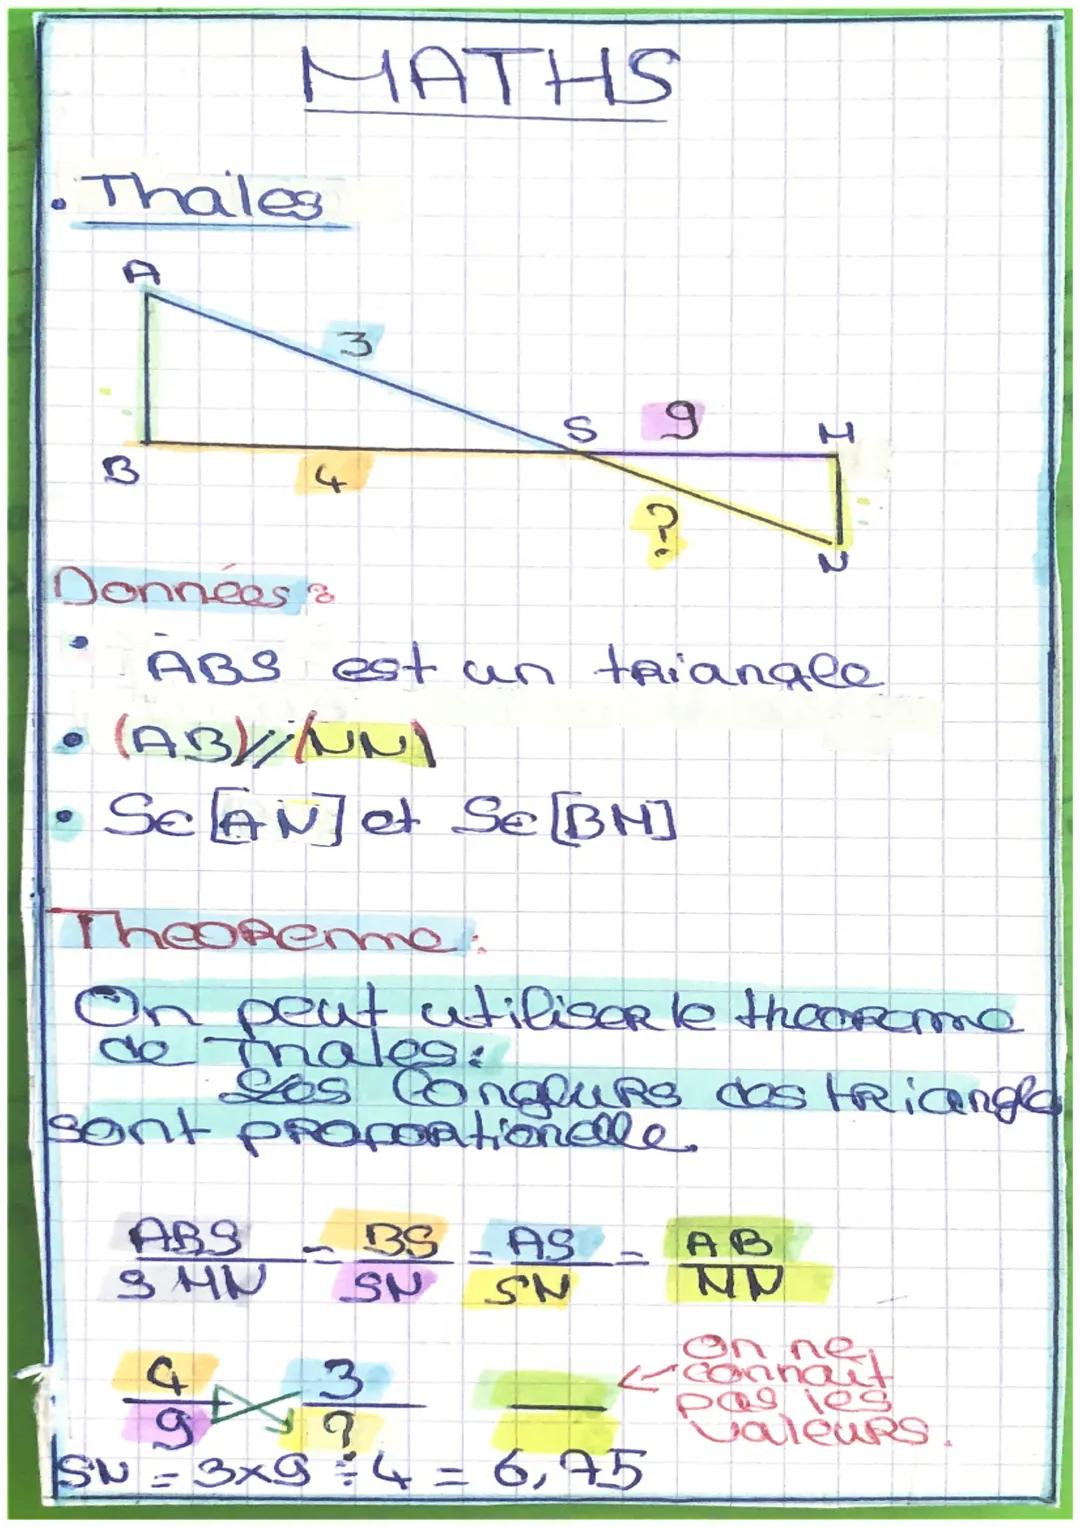 MATHS
. Thales
A
3
S
9
M
B
4
?
N
Données :
• ABS est un triangle
• (AB)//(NN)
• S∈[AN] et S∈[BM]
Theoreme :
On peut utiliser le theoreme
de Thales :
Les longeurs des triangle
sont proportionelle.
ABS/SMN = BS/SN = AS/SN = AB/NN
4/9 3/? On ne
connait
pas les
valeurs.
SN = 3x9 ÷ 4 = 6,75